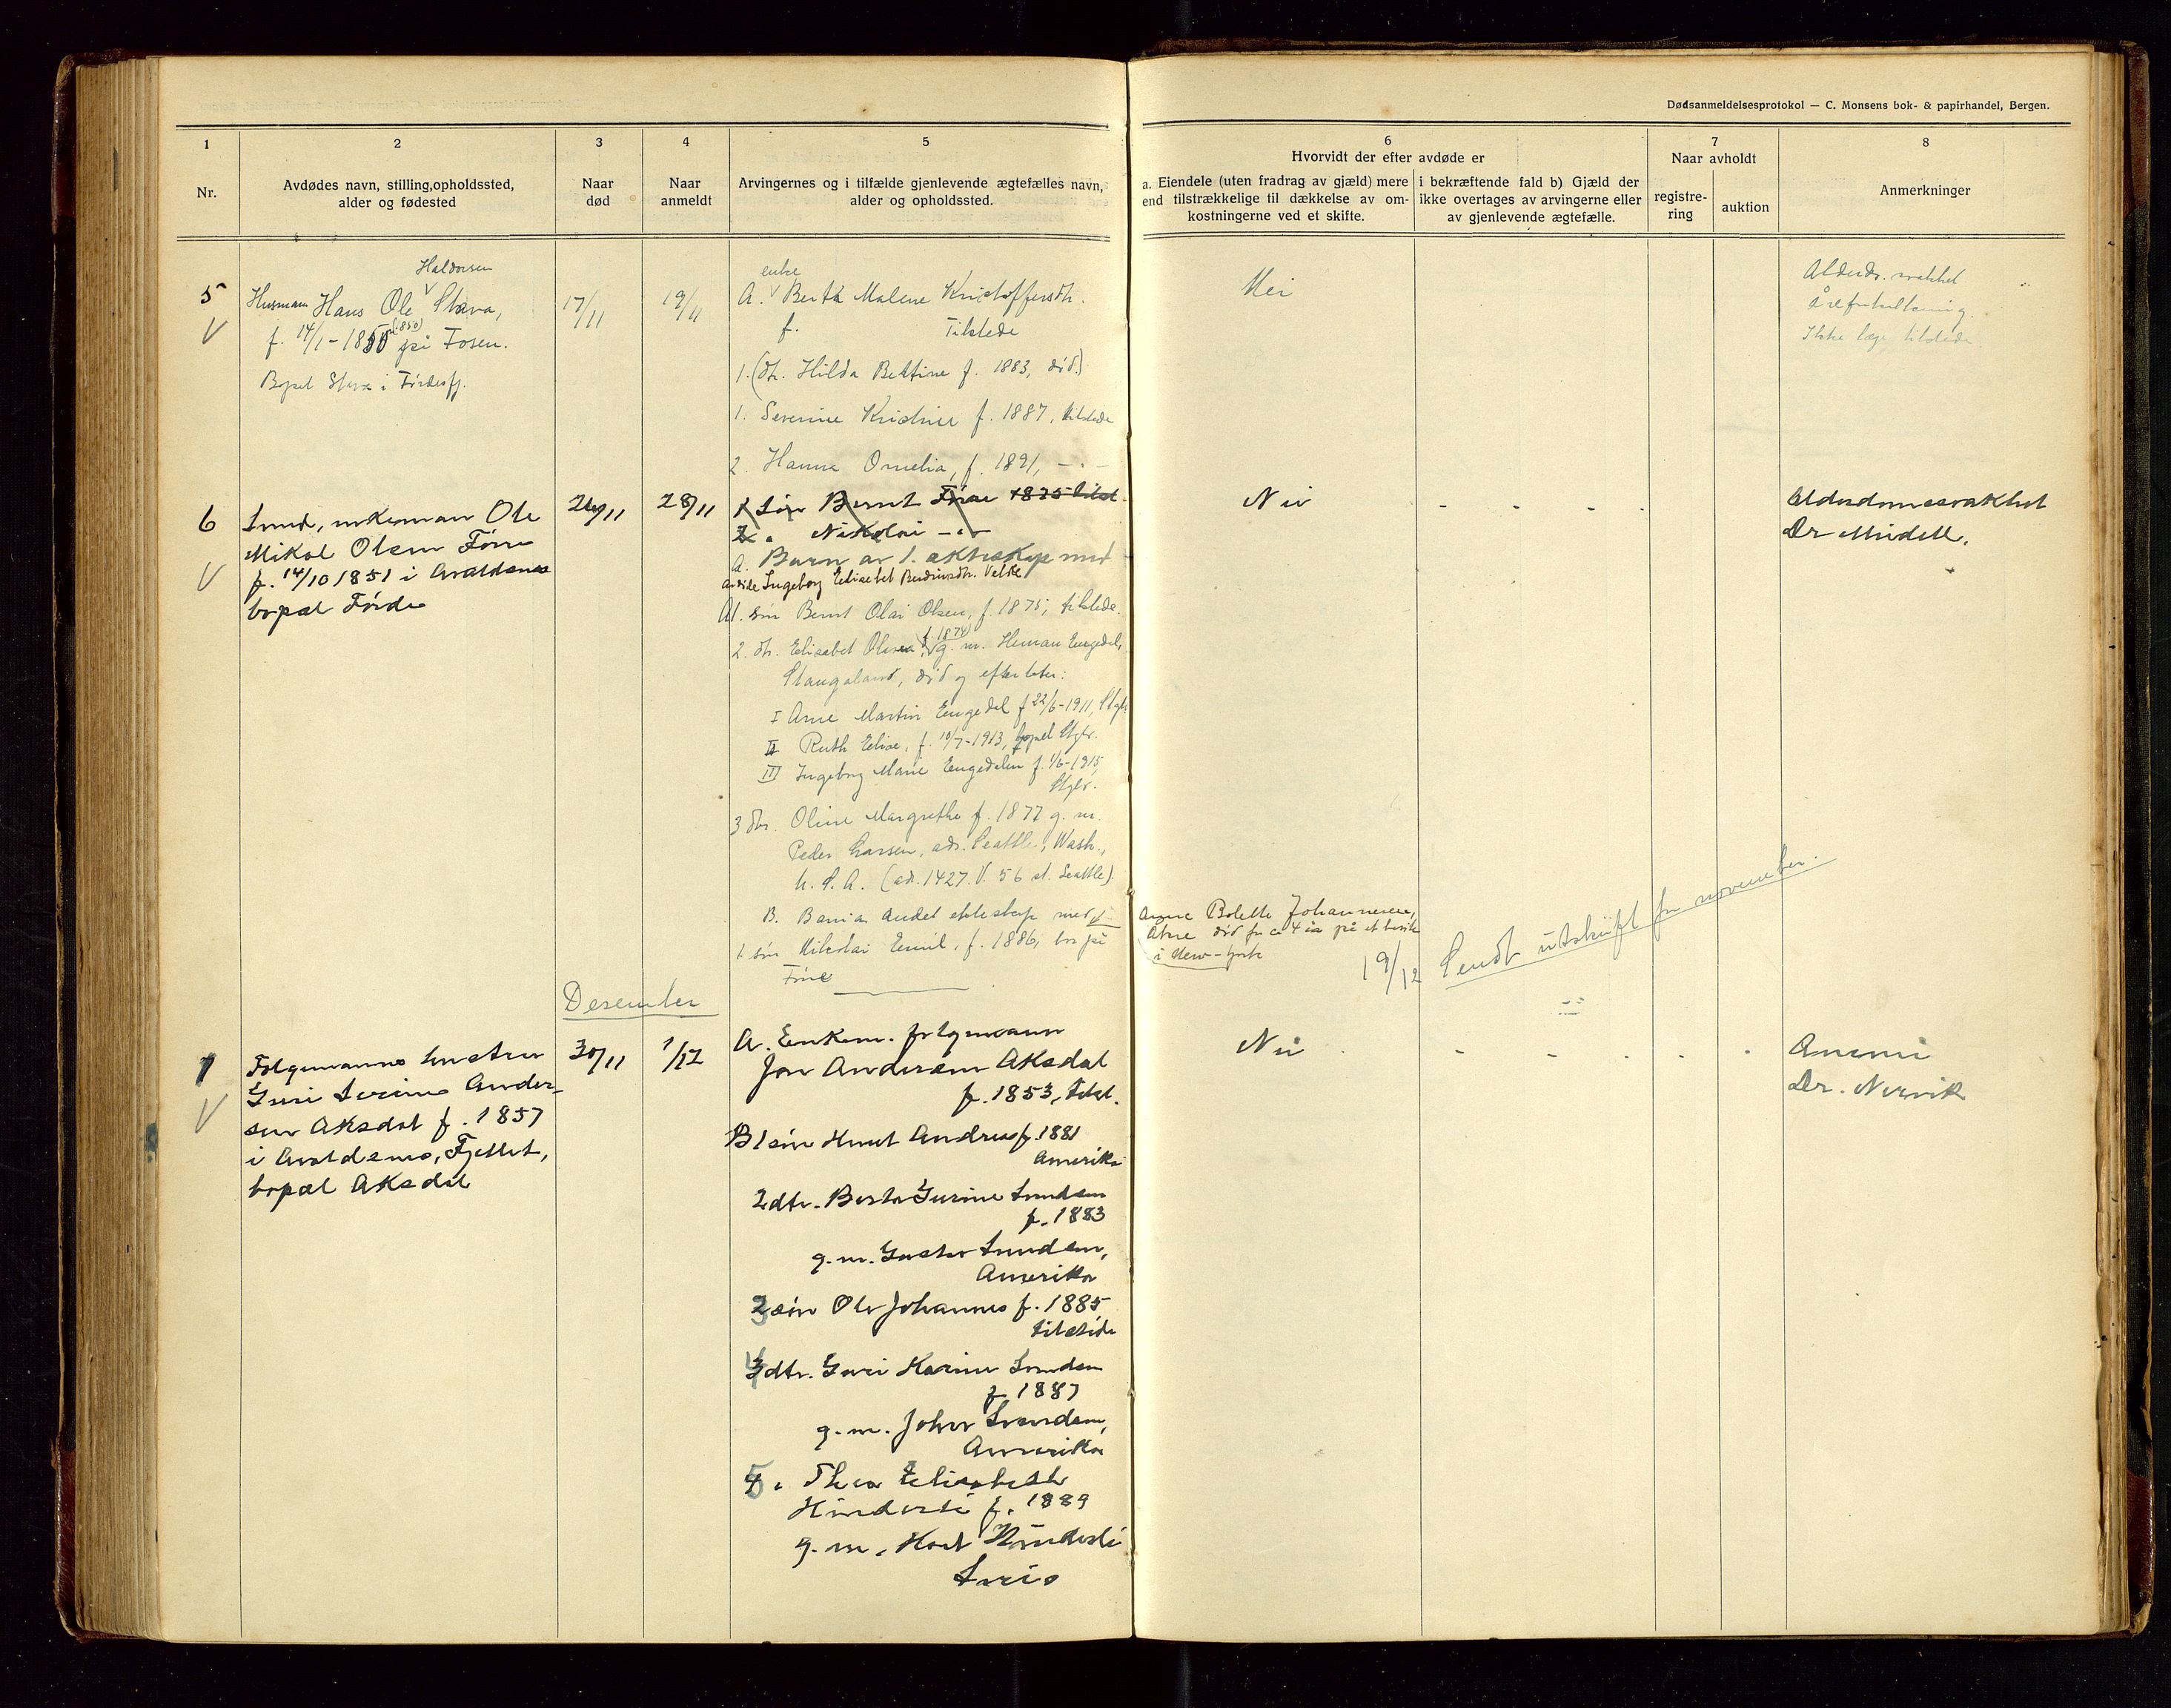 Dødsanmeldelsesprotokol — C. Monsens bok- & papirhandel, Bergen.
1
2
3
4
5
6
7
8
Nr.
Avdødes navn, stilling, opholdssted,
alder og fødested
Naar
død
Naar
anmeldt
Arvingernes og i tilfælde gjenlevende ægtefælles navn,
alder og opholdssted.
Hvorvidt der efter avdøde er
a. Eiendele (uten fradrag av gjæld) mere
end tilstrækkelige til dækkelse av om-
kostningerne ved et skifte.
i bekræftende fald b) Gjæld der
ikke overtages av arvingerne eller
av gjenlevende ægtefælle.
Naar avholdt
registre-
ring
auktion
Anmerkninger
5
Haldorsen
Husmann Hans Ole Stava,
f. 14/1-1850 (1850) på Fosen.
Bopel Stava i Førdesfj.
17/11
19/11
enke
A. Berta Malene Kristoffersdtr.
f. Tilstede
1. (dtr. Hilda Bettine f. 1883, død)
1. Severine Kristine f. 1887, tilstede
2. Hanna Ornelia, f. 1891, -"-
Nei
Alderdr. svakhet
Åreforkalkning.
Ikke læge tilstede
6
Smed, enkemann Ole
Mikal Olsen Førre
f. 14/10 1851 i Avaldsnes
bopæl Førde
26/11
28/11
1 Søn Bernt Førre 1875 tilst.
2 " Nikolai -"-
a. Barn av 1. ekteskap med
avdøde Ingeborg Elisabet Berdinesdtr. Velde
A1. søn Bernt Olai Olsen, f. 1875, tilstede.
2. dtr. Elisabet Olsen (f. 1874) g. m. Herman Engedal,
Stangaland, død og efterlater:
I Arne Martin Engedal f 22/6-1911, Stgl.
II Ruth Elise, f. 10/7-1913, bopel Stgl.
III Ingeborg Marie Engedalen f. 1/6-1915,
Stgld.
3 dtr. Oline Margrethe f. 1877 g. m.
Peder Larsen, adr. Seattle, Wash.,
U. S. A. (adr. 1427. V. 56 st. Seattle)
B. Barn av andet ekteskap med
Anne Bolette Johannesen,
død for ca 4 år på et besøk
i New-York
1 søn Nikolai Emil, f. 1886, bor på
Førre
Nei
Alderdomssvakhet
Dr Midell.
19/12 Sendt utskrift for november.
Desember
1
Følgemanns hustru
Guri Serine Ander-
sen Aksdal f. 1857
i Avaldsnes, Fjellet,
bopæl Aksdal
30/11
1/12
A. Enkem. følgemann
Jon Andersen Aksdal
f. 1853, tilst.
B 1 søn Knut Andreas f. 1881
Amerika
2 dtr. Berta Gurine Svendsen
f. 1883
g. m. Gustav Svendsen,
Amerika
3 søn Ole Johannes f. 1885
tilstede
4 dtr. Guri Karine Svendsen
f. 1887
g. m. John Svendsen,
Amerika
5 " Thea Elisabeth
Hinderli f. 1889
g. m. Hinderli
Nei
Anemi
Dr. Nervik